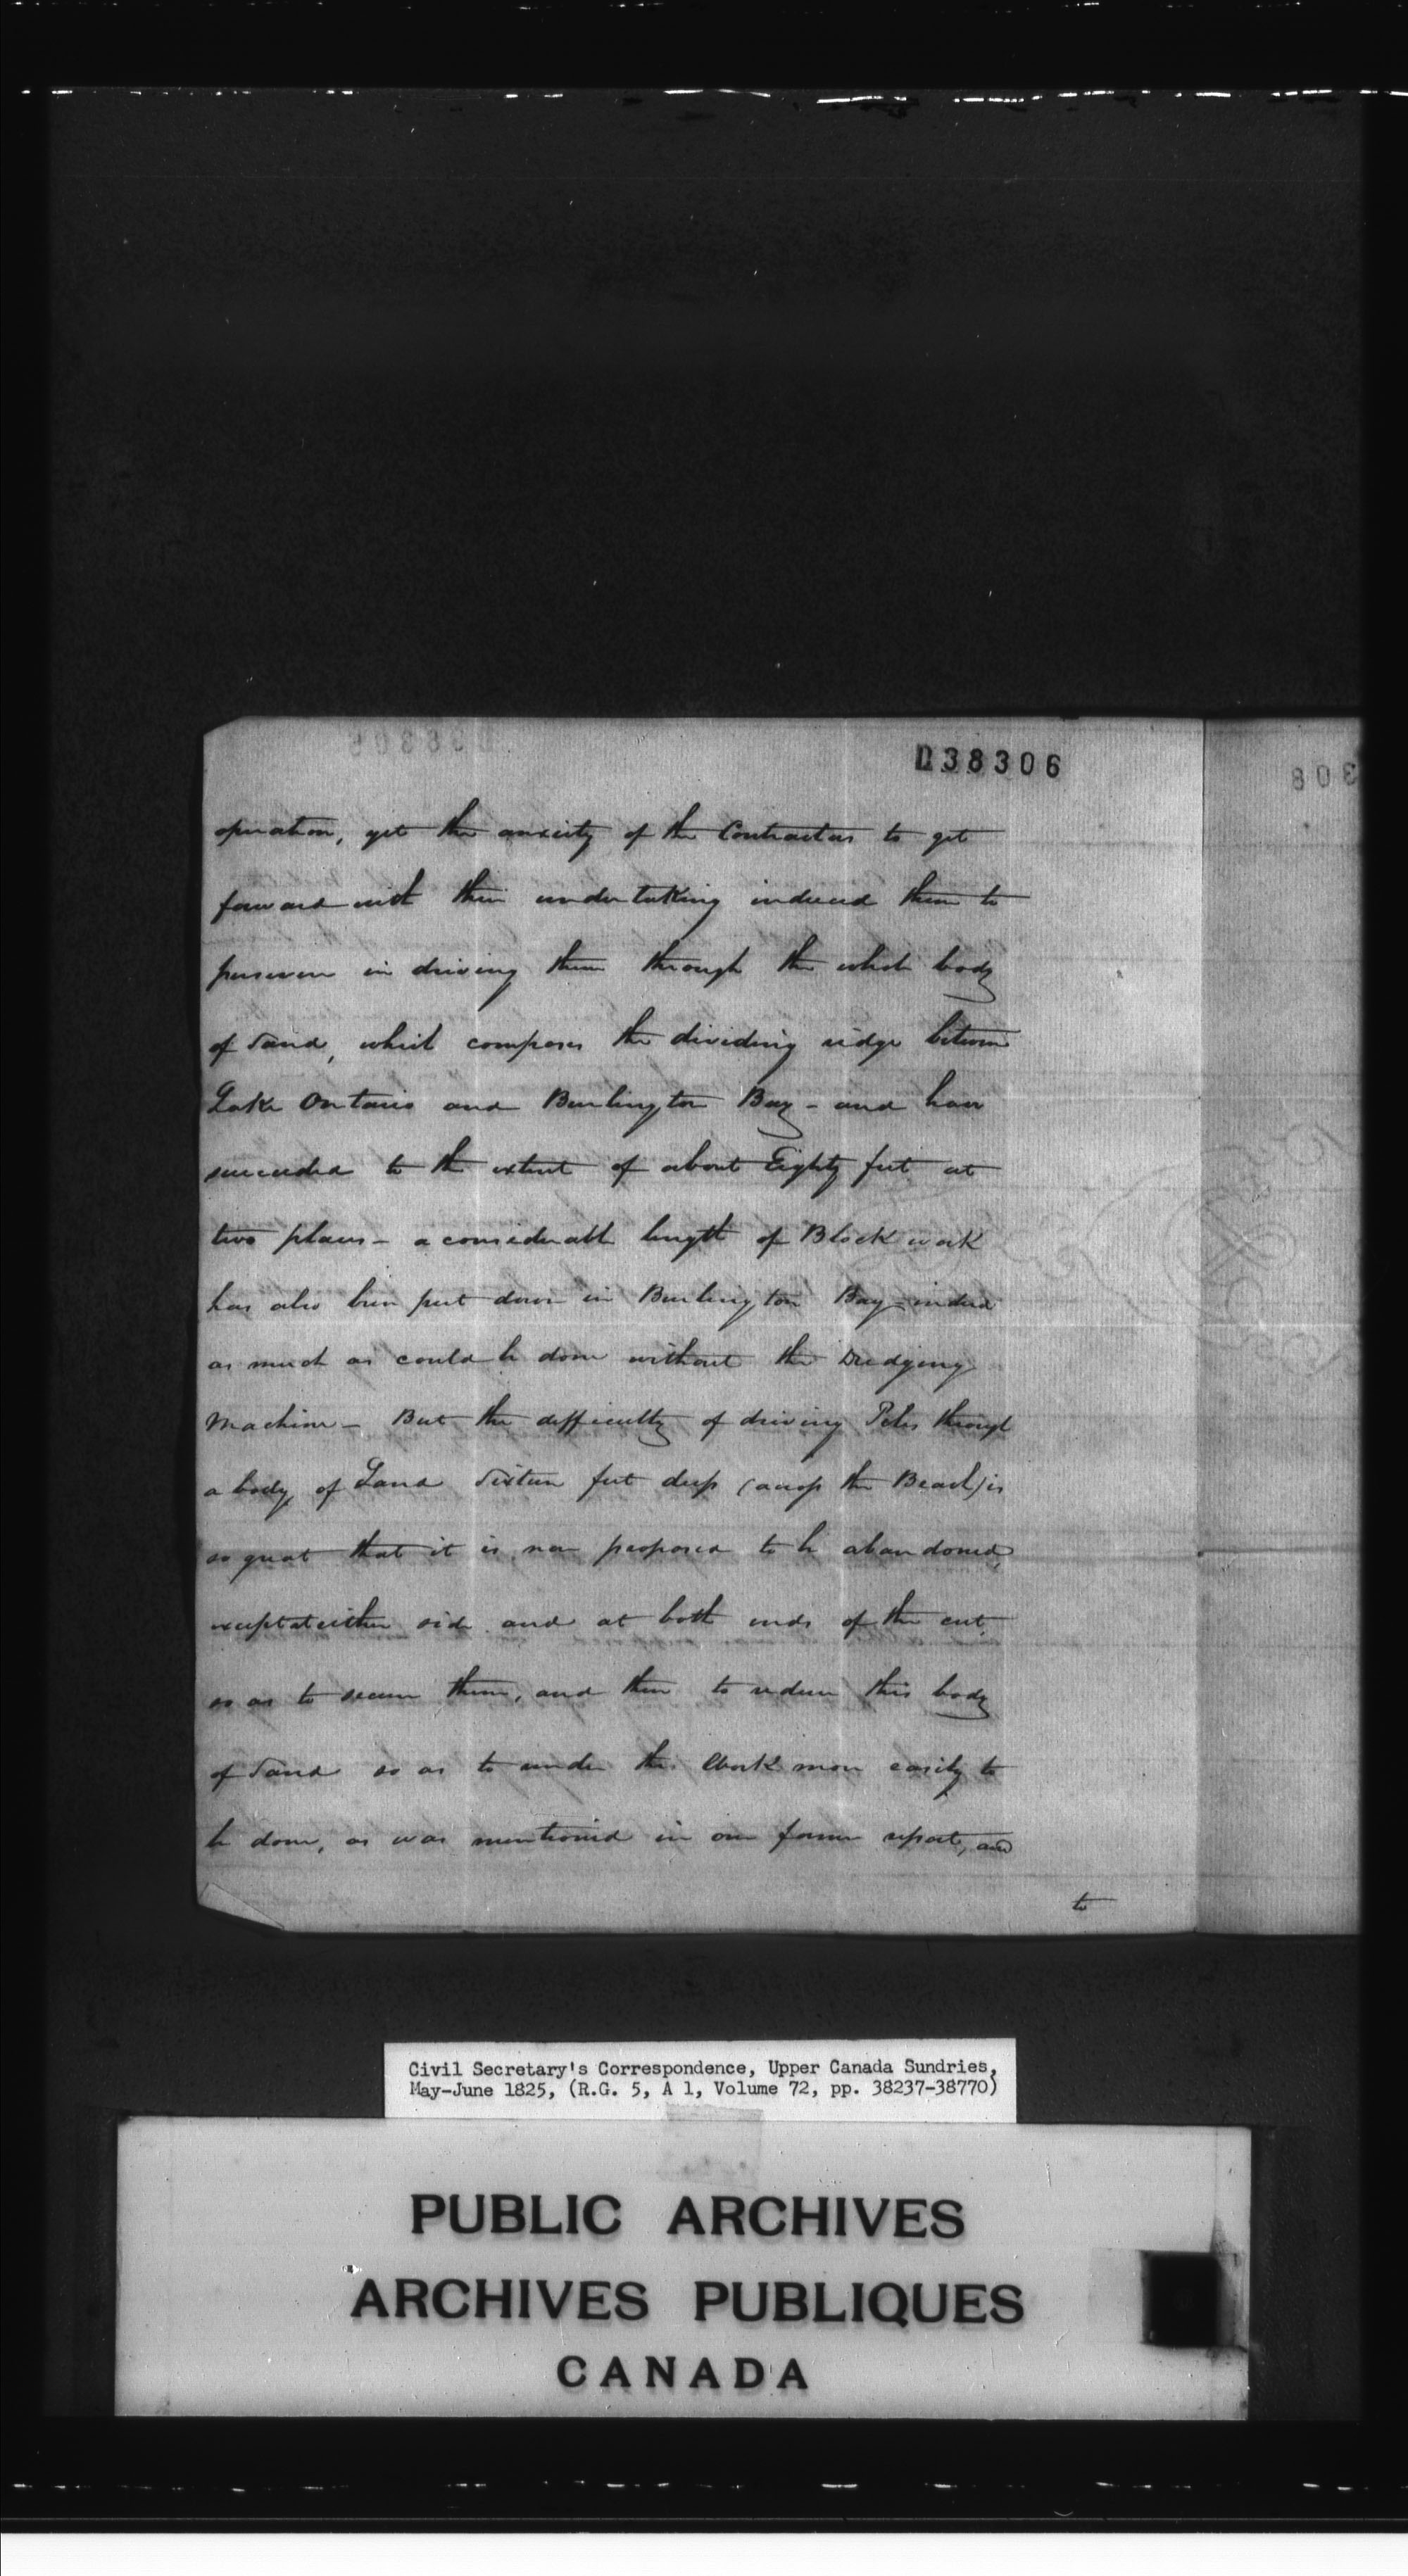 D38306
operation, yet the anxiety of the Contractors to get
forward with their undertaking induced them to
persevere in driving them through the whole body
of Sand, which composes the dividing ridge between
Lake Ontario and Burlington Bay - and have
succeeded to the extent of about Eighty feet at
two places - a considerable length of Block work
has also been put down in Burlington Bay - indeed
as much as could be done without the Dredging
Machine - But the difficulty of driving Piles through
a body of Sand Sixteen feet deep (across the Beach) is
so great that it is now proposed to be abandoned,
except at either side and at both ends of the cut
so as to secure them, and then to reduce this body
of Sand so as to render the Work more easily to
be done, as was mentioned in our former report, and
to
308
Civil Secretary's Correspondence, Upper Canada Sundries,
May-June 1825, (R.G. 5, A 1, Volume 72, pp. 38237-38770)
PUBLIC ARCHIVES
ARCHIVES PUBLIQUES
CANADA